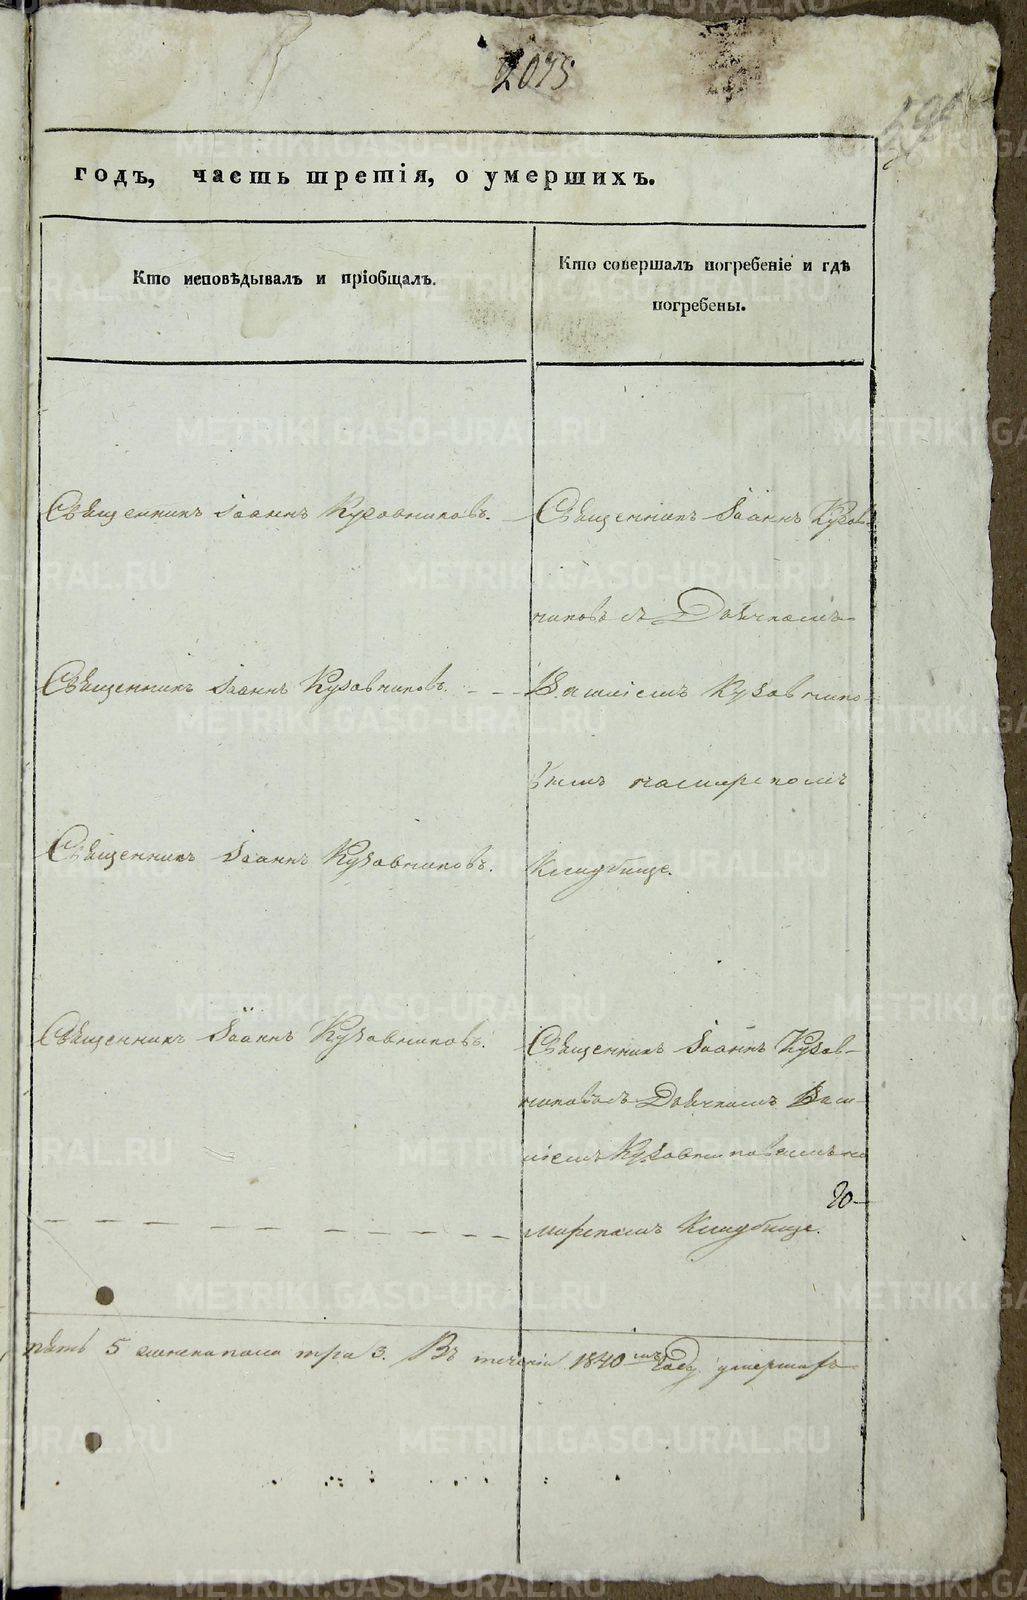 2075
годъ, часть третія, о умершихъ.
Кто исповѣдывалъ и пріобщалъ.
Кто совершалъ погребеніе и гдѣ
погребены.
Священникъ Іоаннъ Кузовниковъ.
Священникъ Іоаннъ Кузов-
никовъ съ Дьячкомъ
Священникъ Іоаннъ Кузовниковъ.
Василіемъ Кузовнико-
вымъ на мирскомъ
Священникъ Іоаннъ Кузовниковъ.
Кладбище.
Священникъ Іоаннъ Кузовниковъ.
Священникъ Іоаннъ Кузов-
никовъ съ Дьячкомъ Васи-
ліемъ Кузовниковымъ на
мирскомъ Кладбище.
пять 5 женска пола три 3. Въ теченіи 1840 мъ Году умершихъ
METRIKI.GASO-URAL.RU